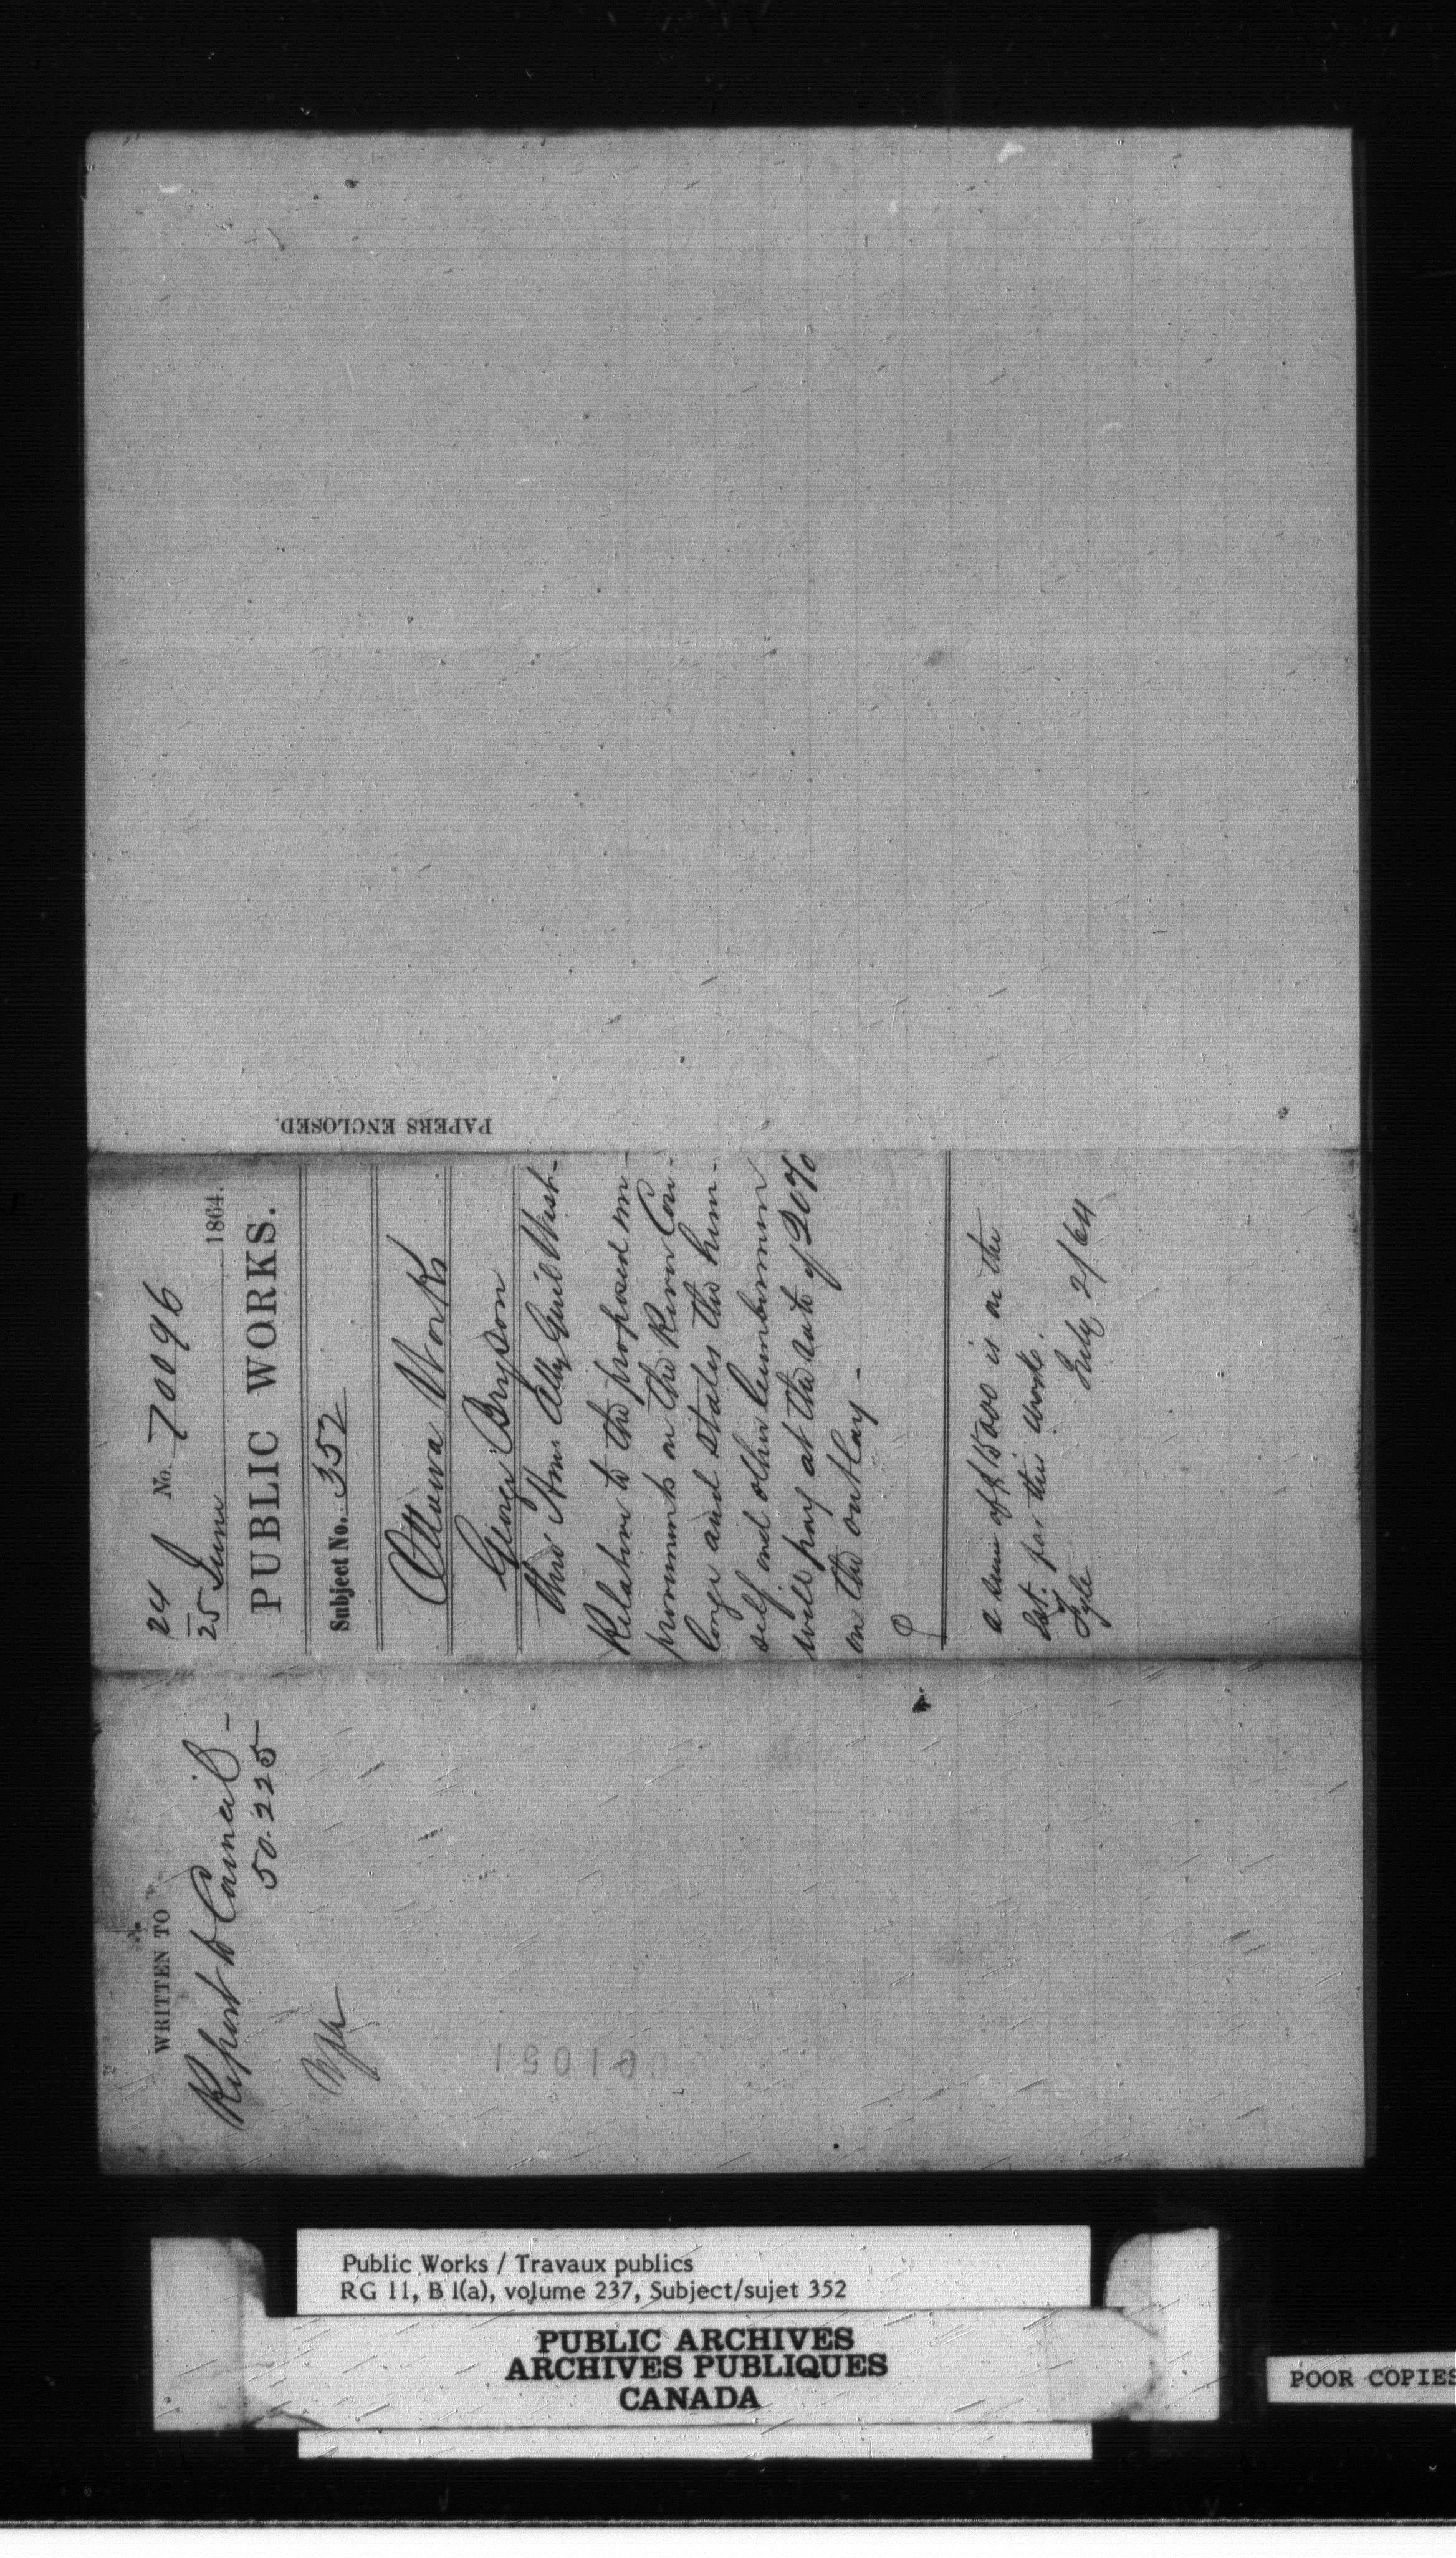 24
25 June 1864.
No. 70096
PUBLIC WORKS.
Subject No. 352
Ottawa Works
George Bryson
thro' Hon. Atty Genl West-
Relative to the proposed im-
provements on the River Cou-
longe and states that him-
self and other lumbermen
will pay at the rate of 20%
on the outlay -
a sum of $15000 is on the
Est. for this work.
Fyle
July 2/64
PAPERS ENCLOSED.
WRITTEN TO
Report to Council -
50.225
Public Works / Travaux publics
RG 11, B 1(a), volume 237, Subject/sujet 352
PUBLIC ARCHIVES
ARCHIVES PUBLIQUES
CANADA
POOR COPIES